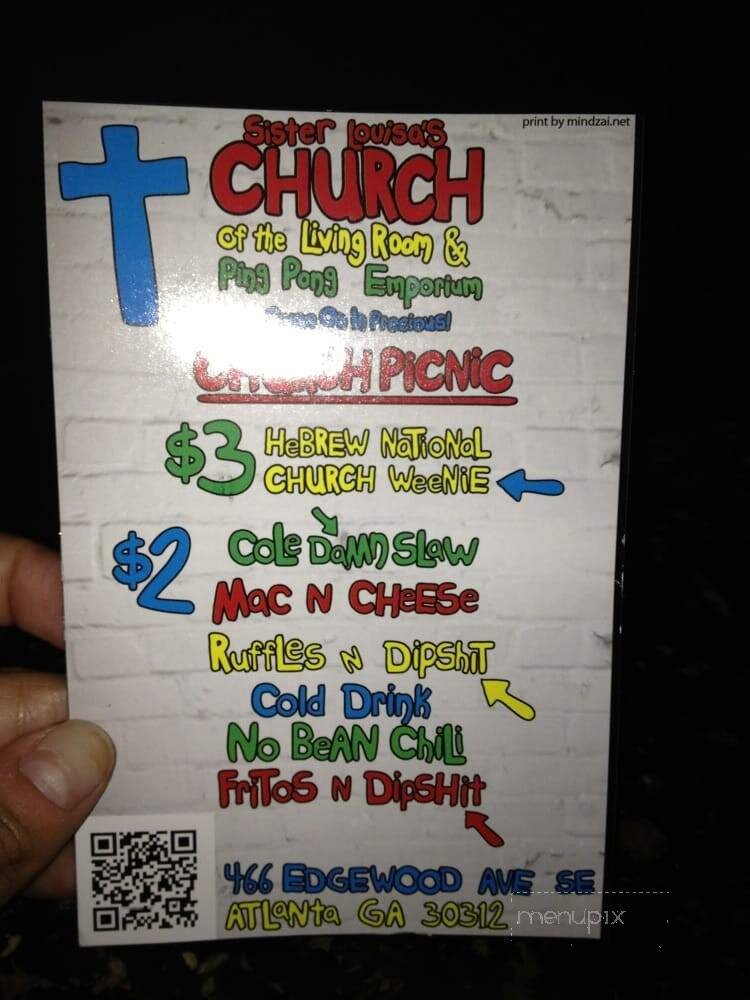 print by mindzai.net
Sister Louisa's
CHURCH
of the Living Room &
Ping Pong Emporium
Come On In Precious!
CHURCH PiCNiC
$3 HeBREW NaTioNaL
CHURCH WeeNiE
$2 Cole DaMN SLaw
Mac N CHeeSe
RuffLes N DipshiT
Cold Drink
No BeAN ChiLi
FRiTos N DipSHit
466 EDGEWOOD AVE SE
ATLanta GA 30312
menupix